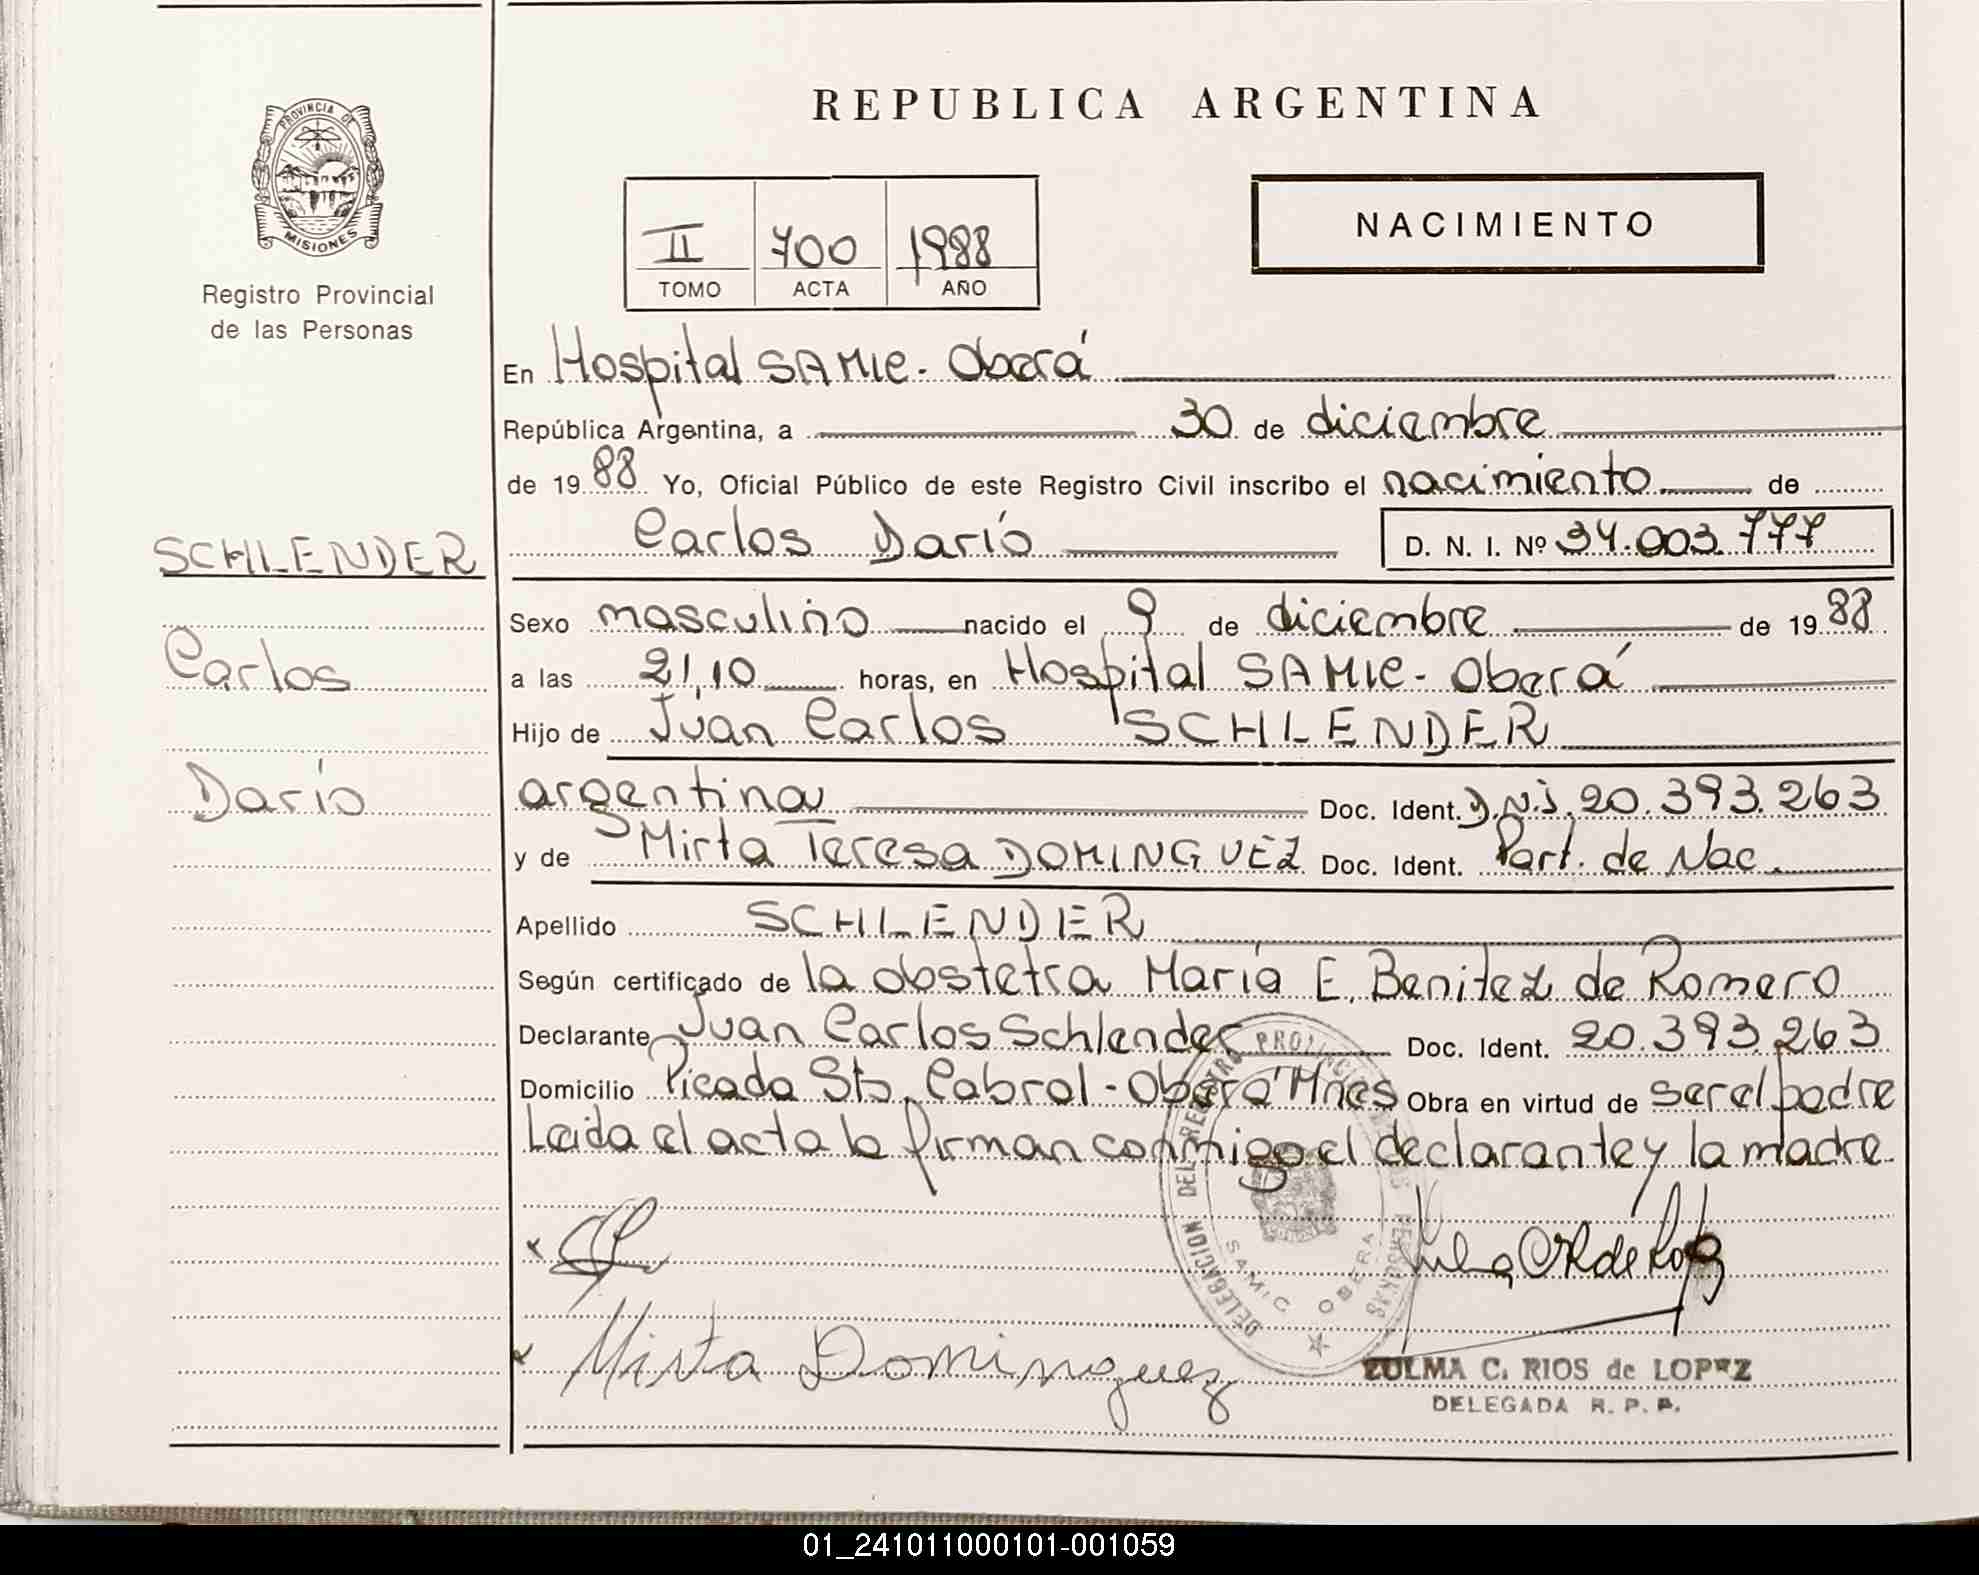 REPUBLICA ARGENTINA
PROVINCIA DE
MISIONES
Registro Provincial
de las Personas
II 700 1988
TOMO ACTA AÑO
NACIMIENTO
En Hospital SAMIC - Oberá
República Argentina, a 30 de diciembre
de 19 88 Yo, Oficial Público de este Registro Civil inscribo el nacimiento de
Carlos Darío D. N. I. Nº 34.003.777
SCHLENDER
Carlos
Darío
Sexo masculino nacido el 9 de diciembre de 19 88
a las 21,10 horas, en Hospital SAMIC - Oberá
Hijo de Juan Carlos SCHLENDER
argentina Doc. Ident. D.N.I. 20.393.263
y de Mirta Teresa DOMINGUEZ Doc. Ident. Part. de Nac.
Apellido SCHLENDER
Según certificado de la obstetra María E. Benitez de Romero
Declarante Juan Carlos Schlender Doc. Ident. 20.393.263
Domicilio Picada Sto. Cabral - Oberá Mnes Obra en virtud de ser el padre
Leida el acta la firman conmigo el declarante y la madre.
DELEGACION DEL REGISTRO PROVINCIAL DE LAS PERSONAS
SAMIC OBERA
Mirta Dominguez
ZULMA C. RIOS de LOPEZ
DELEGADA R. P. P.
01_241011000101-001059